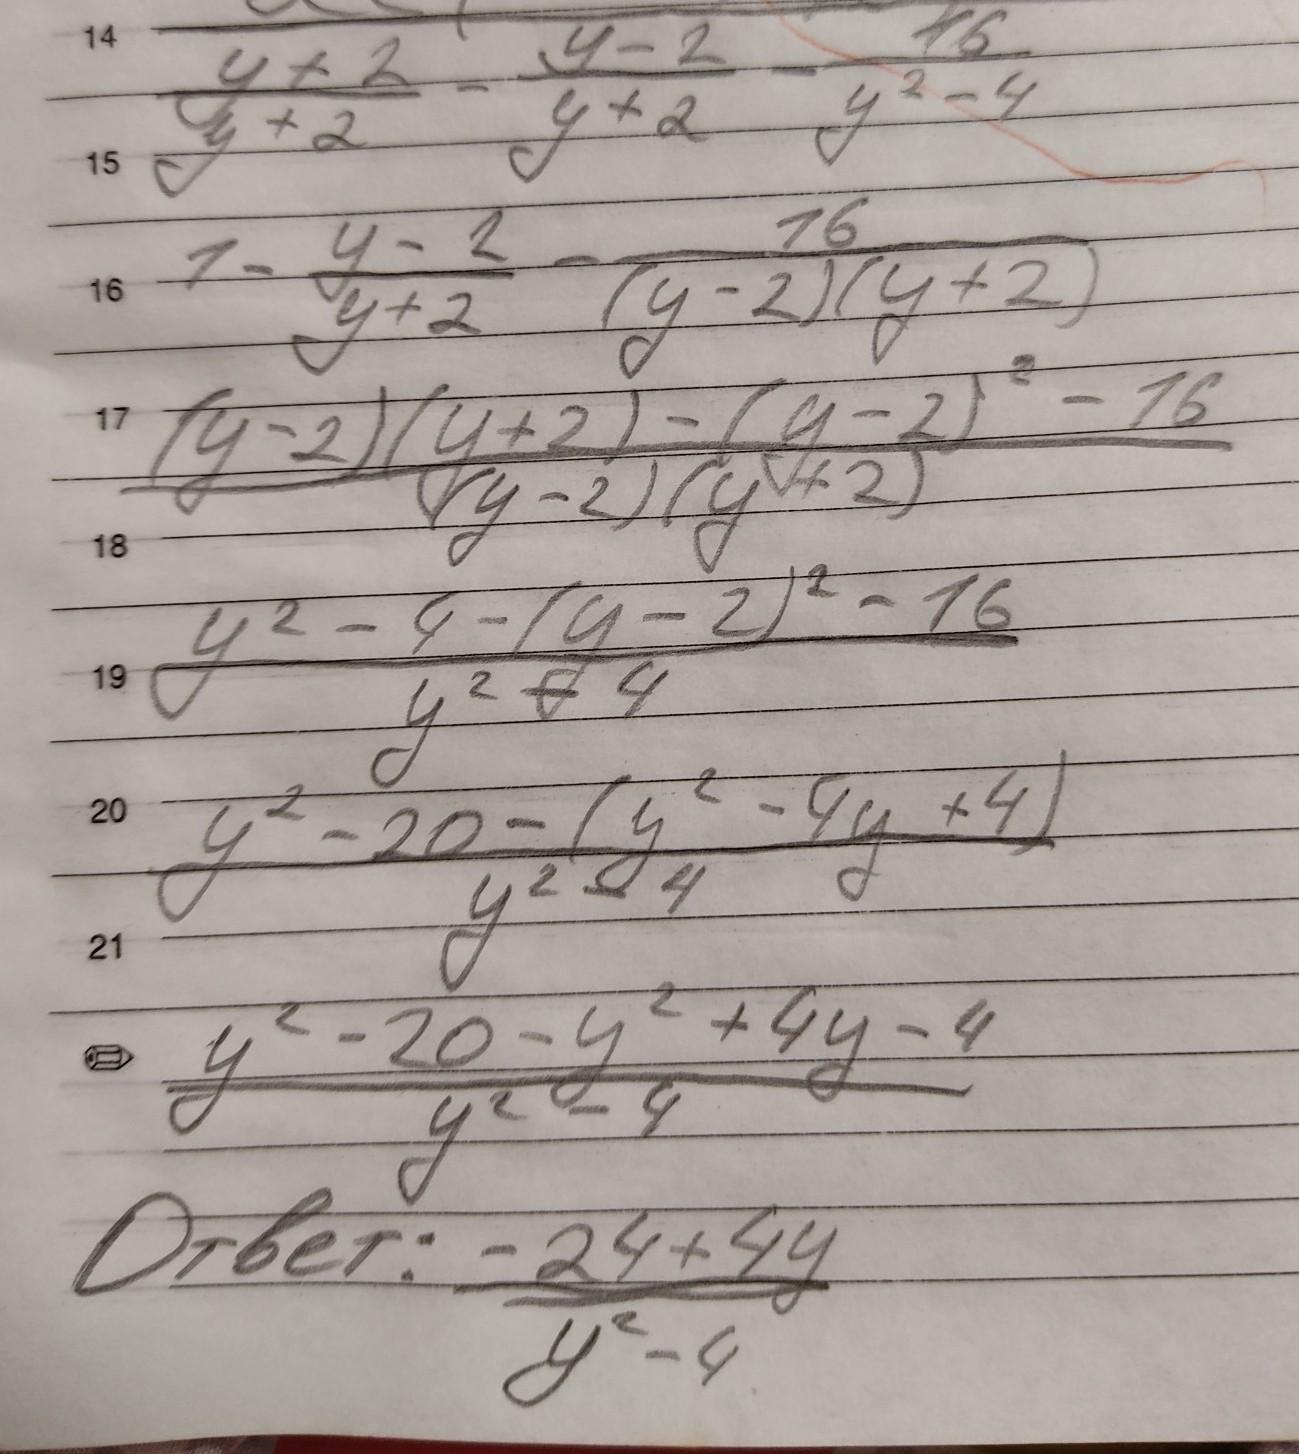 14
(y + 2)/(y + 2) - (y - 2)/(y + 2) - 16/(y² - 4)
15
16 1 - (y - 2)/(y + 2) - 16/((y - 2)(y + 2))
17 ((y - 2)(y + 2) - (y - 2)² - 16)/((y - 2)(y + 2))
18
19 (y² - 4 - (y - 2)² - 16)/(y² - 4)
20 (y² - 20 - (y² - 4y + 4))/(y² - 4)
21
(y² - 20 - y² + 4y - 4)/(y² - 4)
Ответ: (-24 + 4y)/(y² - 4)